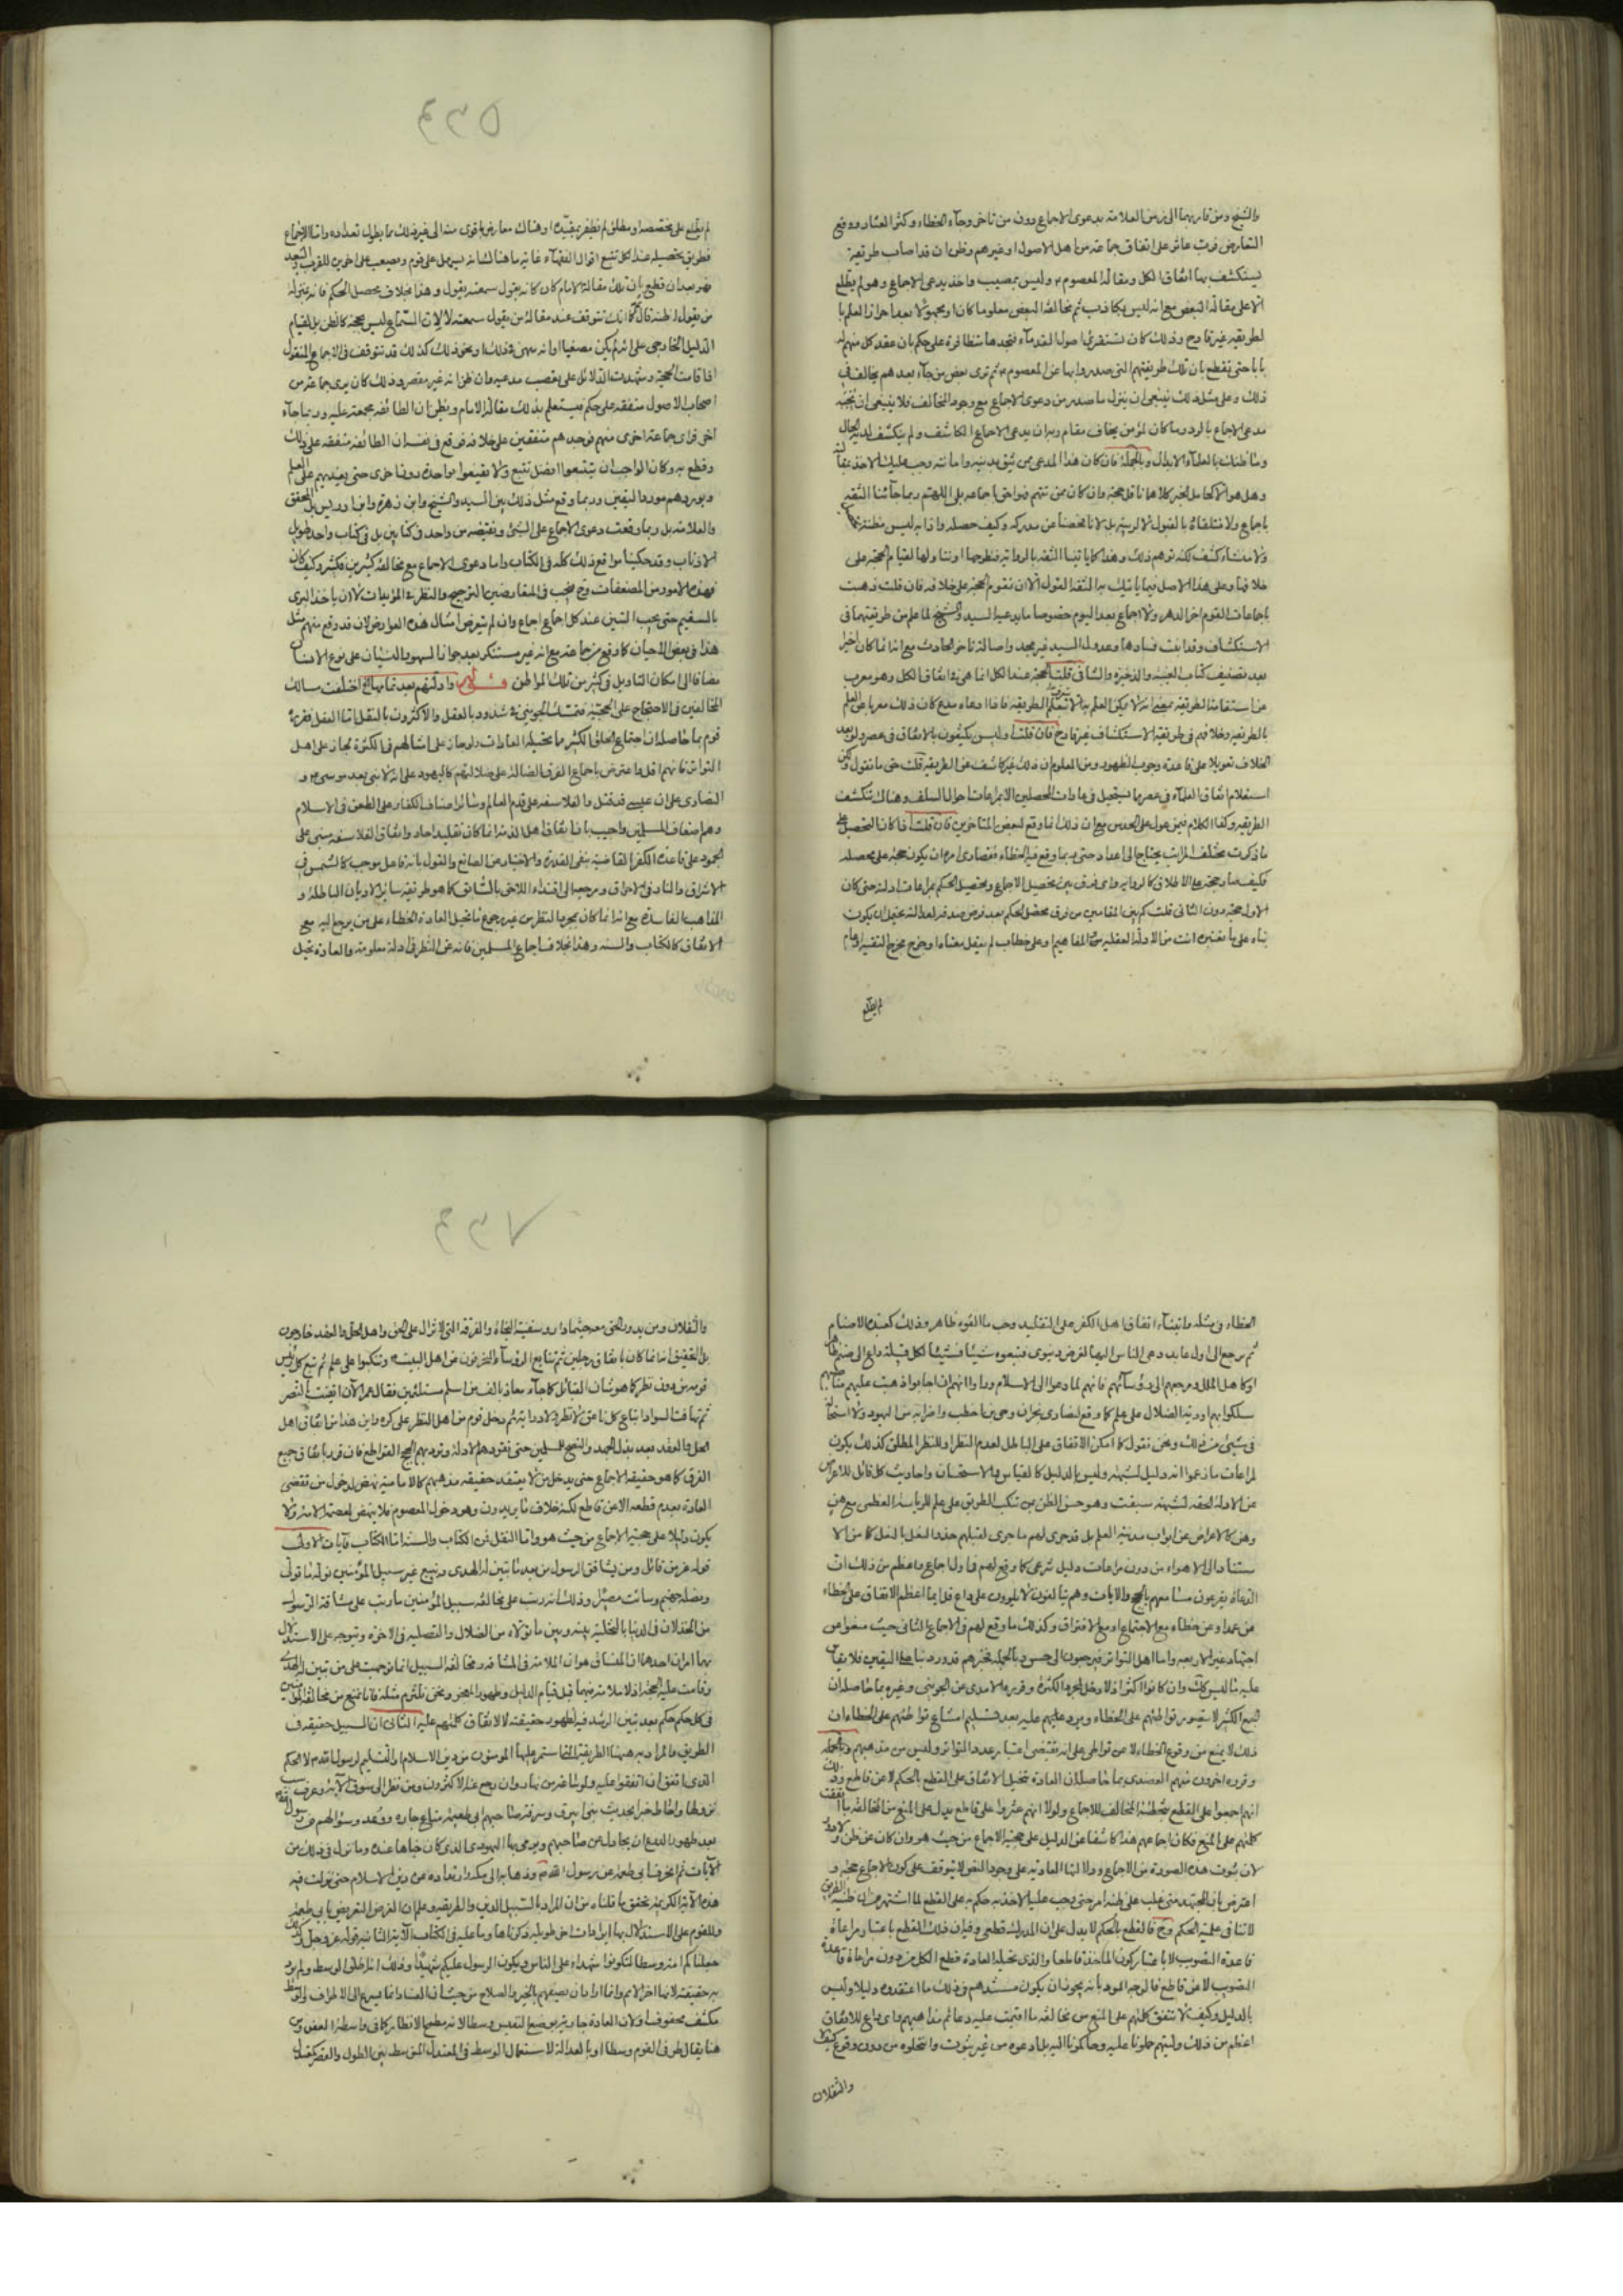 والشيخ ومن قاربهما الى زمن العلامة بدعوى الاجماع دون من تاخر وجاء الخطاء وكثر العثار ووقع
التعارض فرب عاثر على اتفاق جماعة من اهل الاصول او غيرهم وظن ان قد اصاب طريقة
يستكشف بها اتفاق الكل ومقالة المعصوم وليس بمصيب واخذ يدعى الاجماع وهو لم يطلع
الا على مقالة البعض مع انه ليس بكاذب ثم مخالفة البعض معلوما كان او مجهولا بعد احراز العلم با
لطريقه غير قادح وذلك كان تستقرئ اصول القدماء فتجدها متظافرة على حكم بان عقد كل منهم له
بابا حتى تقطع بان تلك طريقتهم التى صدروا بها عن المعصوم ثم ترى بعض من جاء بعدهم يخالف في
ذلك وعلى مثل ذلك ينبغى ان ينزل ما صدر من دعوى الاجماع مع وجود المخالف فلا ينبغى ان
مدعى الاجماع بالرد وما كان لمؤمن يخاف مقام ربه ان يدعى الاجماع الكاشف ولم ينكشف لديه الحال
وما ظنك بالعلماء الابدال وبالجملة فان كان هذا المدعى ممن تثق بدينه وامانته وجب عليك الاخذ
وهل هو الا كحامل الخبر كلاهما ناقل حجة وان كان ممن تتهم فى اجماعه بلى اللهم ربما جائنا الثقة
باجماع ولا نتلقاه بالقبول لا لريبة بل لانا فحصنا عن مدركه وكيف حصله واذا به ليس مظنة
ولا منشاء كشف لكنه توهم ذلك وهذا كما ياتينا الثقه بالرواية فنطرحها او نناولها لقيام الحجة على
خلافها وعلى هذا الاصل فيما ياتيك به الثقة القبول الا ان تقوم الحجة على خلافه فان قلت ذهبت
باجماعات القوم اخر الدهر ولا اجماع بعد اليوم خصوصا ما يدعيه السيد والشيخ لما علم من طريقتهما في
الاستكشاف وقد ابنت فسادها وعدول السيد غير مجد واصالة تاخر الحادث مع انه انما كان اخيرا
بعد تصنيف كتاب الغيبة والذخيرة والشافى قلت الحجة عند الكل انما هى فى اتفاق الكل وهو معرب
عن استقامة الطريقة بمعنى انه لا يمكن العلم به الا بتعلم الطريقة فاذا ادعاه مدع كان ذلك معربا عن العلم
بالطريقه وخلافهم فى طريقة الاستكشاف غير قادح فان قلت اوليس يكتفون بالاتفاق فى عصر ولو بعد
الخلاف تعويلا على قاعدة وجوب الظهور ومن المعلوم ان ذلك غير كاشف عن الطريقة قلت حتى ما نقول ولكن
استعلام اتفاق العلماء فى عصر مما يستحيل فى عادات المحصلين الا بمراعات احوال السلف وهناك تنكشف
الطريقه وكفا الكلام فيمن عول على الحدس مع ان ذلك انما وقع لبعض المتاخرين فان قلت اذا كان التحصيل على
ما ذكرت مختلف المراتب يحتاج الى اعداد حتى ربما وقع فيه الخطاء فقصارى امره ان يكون حجة على محصله
فكيف صار حجة على الاطلاق كالرواية واى فرق بين تحصيل الاجماع وتحصيل الحكم بمراعات ادلته حتى كان
الاول حجة دون الثانى قلت كم بين المقامين من فرق محصل الحكم بعد فرض صدقه لعدالته يحتمل ان يكون
بناه على ما يعتبره انت من الادلة العقلية والمفاهيم او على خطاب لم ينقل معناه او خرج مخرج التقية او عام
لم يطلع
لم يطلع على مخصصه او مطلق لم يظفر بمقيده او هناك معارض اقوى منه الى غير ذلك مما يطول تعداده واما الاجماع
فطريق تحصيله عند الكل تتبع اقوال الفقهاء غاية ما هناك انه يسهل على قوم ويصعب على اخرين للقرب والبعد
فهو بعد ان قطع بان تلك مقالة الامام كان كانه يقول سمعته يقول وهذا بخلاف محصل الحكم فانه بمنزلة
من يقول اظنه قال كما انك تتوقف عند مقالة من يقول سمعته لا لان السماع ليس بحجة كالظن بل لقيام
الدليل الخارجى على انه لم يكن مصغيا او انه سهى ونحو ذلك كذلك قد تتوقف فى الاجماع المنقول
اذا قامت الحجة وشهدت الدلائل على تعصب مدعيه وان ظن انه غير مقصر وذلك كان يرى جماعة من
اصحاب الاصول متفقه على حكم فيستعلم بذلك مقالة الامام ويظن ان الطائفة مجمعة عليه وربما جاء
اخر فراى جماعة اخرى منهم فوجدهم متفقين على خلافه فوقع فى نفسه ان الطائفة متفقة على ذلك
وقطع به وكان الواجب ان يتتبعوا افضل تتبع ولا يقنعوا بواحدة دون اخرى حتى يفيدهم على العلم
ويوردهم مورد اليقين وربما وقع مثل ذلك بين السيد والشيخ وابن زهرة وابن ادريس بل المحقق
والعلامة بل ربما وقعت دعوى الاجماع على الشئ ونقيضه من واحد فى كتابين بل فى كتاب واحد طويل
الاذناب وقد حكينا مواقع ذلك كله فى الكتاب واما دعوى الاجماع مع مخالفة كثيرين فكثير وكيف كان
فهذه الامور من المضعفات وح فيجب فى المتعارضين الترجيح والنظر فى المؤيدات لا ان ياخذ البرى
بالسقيم حتى يجب التبين عند كل اجماع اجماع وان لم يتعرض امثال هذه العوارض لان قد وقع منهم مثل
هذا فى بعض الاحيان كما وقع من جماعة مع انه غير مستنكر بعد جواز السهو والنسيان على نوع الانسان
مضافا الى امكان التاويل فى كثير من تلك المواطن وادلتهم بعد تمامها اختلفت مسالك
المخالفين فى الاحتجاج على الحجية فتمسك الجوينى فى شذوذ بالعقل والاكثرون بالنقل اما العقل فقرره
قوم بما حاصله ان اجتماع الخلق الكثير مما تحيله العادات ولو جاز على امثالهم فى الكثرة لجاز على اهل
التواتر فانهم اقل واعترض باجماع الفرق الضالة على ضلالتهم كاليهود على انه لا نبى بعد موسى و
النصارى على ان عيسى قد قتل والفلاسفه على قدم العالم وسائر اصناف الكفار على الطعن فى الاسلام
وهم اضعاف المسلمين واجيب بان اتفاق اهل الذمة انما كان تقليد احاد واتفاق الفلاسفه مبنى على
الجمود على قاعدة الكفر القاضية بنفى القدرة والاختيار عن الصانع والقول بانه فاعل موجب كالشمس في
الاشراق والنار فى الاحراق ومرجعها الى اقتداء اللاحق بالسابق كما هو طريقة سائر الاديان الباطلة و
المذاهب الفاسدة مع انه انما كان بمجرد النظر من غير رجوع لما تحيل العادة الخطاء على من يرجع اليه مع
الاتفاق كالكتاب والسنة وهذا بخلاف اجماع المسلمين فانه عن النظر فى ادلة معلومة والعادة تحيل
الخطاء فى مثله وابتناء اتفاق اهل الكفر على التقليد وحب ما الفوه ظاهر وذلك كعبدة الاصنام
ثم يرجع الى اول عابد دعى الناس اليها لغرض دنيوى فتبعوه شيئا فشيئا لكل قبيلة داع الى صنمها
او كاهل الملل ومرجعهم الى رؤسائهم فانهم لما دعوا الى الاسلام وراوا انهم ان اجابوا ذهبت عليهم
سلكوا بهم اودية الضلال على علم كما وقع لنصارى نجران وحيى بن اخطب واضرابه من اليهود ولا استحالة
فى شئ من ذلك ونحن نقول كما امكن الاتفاق على الباطل لعدم النظر او للنظر المطلق كذلك يكون
لمراعات ما زعموا انه دليل لشبهة وليس بالدليل كالقياس والاستحسان واحاديث كل قائل للاعراض
عن الادلة الحقه لشبهة سبقت وهو حسن الظن بمن تنكب الطريق على علم للرياسة العظمى مع
وهن كالاعراض عن ابواب مدينة العلم بل قد جرى لهم ما جرى لقبلهم حذو النعل بالنعل كما من الا
ستناد الى الاهواء من دون مراعات دليل شرعى كما وقع لهم فى اول اجماع واعظم من ذلك ان
الدعاة يقرعون مسامعهم بالحجج والايات وهم يتالفون لا يلوون على داع فلربما اعظم الاتفاق على الخطاء
عن عمد او عن خطاء مع الاجتماع او مع الافتراق وكذلك ما وقع لهم فى الاجماع الثانى حيث منعوا من
اجتهاد غير الاربعه واما اهل التواتر فيرجعون الى حسوس بالجملة فخبرهم قد ورد بنا على اليقين فلا يقاس
عليه ما ليس كك وان كانوا اكثر اذ لا دخل لمجرد الكثرة وقرره الامدى عن الجوينى وغيره بما حاصله ان
الجمع الكثير لا يتصور تواطئهم على الخطاء ويرد عليهم عليه بعد تسليم امتناع تواطئهم على الخطاء ان
ذلك لا يمنع من وقوع الخطاء لا عن تواطى على انه يقتضى اعتبار عدد التواتر وليس من مذهبهم وبالجملة
وقرره اخرون منهم العضدى بما حاصله ان العادة تحيل الاتفاق على القطع بالحكم لا عن قاطع وذلك
انهم اجمعوا على القطع بتخطئة المخالف للاجماع ولولا انهم عثروا على قاطع يدل على المنع من المخالفة ما اتفقت
كلمتهم على المنع فكان اجماعهم هذا كاشفا عن الدليل على حجية الاجماع من حيث هو وان كان عن ظن ولا دور
لان ثبوت هذه الصورة من الاجماع ودلالتها العادية على وجود النص لا يتوقف على كون الاجماع حجة و
اعترض بان المجتهد متى غلب على ظنه امر حتى وجب عليه الاخذ به حكم به على القطع لما اشتهر من ان ظنية الطريق
لا تنافى علمية الحكم وح فالقطع بالحكم لا يدل على ان المدرك قطعى وفيه ان ذلك القطع باعتبار مراعاة
قاعدة التصويب لا باعتبار كون الماخذ قاطعا والذى تحيله العادة قطع الكل من دون مراعاة قاعدة
التصويب لا عن قاطع فالوجه الرد بانه يجوز ان يكون مستندهم فى ذلك ما اعتقدوه دليلا وليس
بالدليل وكيف لا تتفق كلمتهم على المنع من مخالفة ما اقيمت عليه دعائم مذاهبهم واى داع للاتفاق
اعظم من ذلك وليتهم حملونا عليه وحاكمونا اليه بل ادعوه من غير ثبوت وانتحلوه من دون وقوع كيف لا
والثقلان
والثقلان ومن يدور الحق معه حيثما دار وسفينة النجاة والفرقة التى لا تزال على الحق واهل الحل والعقد خارجون
بل التحقيق انه انما كان باتفاق رجلين ثم تتابع الرؤساء النافرون من اهل البيت وتنكبوا على علم ثم تبع كل رئيس
قومه من دون نظر كما هو شان القبائل كما جاء معاذ بالفين اسلم مستلئمين فقال عمر الان ايقنت بالنصر
ثم تهافت السواد اتباع كل ناعق لا نظر ولا دراية ثم دخل قوم من اهل النظر على كره واين هذا من اتفاق اهل
الحل والعقد بعد بذل الجهد والنصح للمسلمين حتى تقودهم الادلة وتردهم الحجج القواطع فان قرر باتفاق جميع
الفرق كما هو حقيقة الاجماع حتى يدخل من لا يعتقد حقيقة مذهبهم كالامامية نهض لدخول من تقضى
العادة بعدم قطعه الا عن قاطع لكنه خلاف ما يريدون وهو دخول المعصوم فلا ينهض لعصمة الامة ولا
يكون دليلا على حجية الاجماع من حيث هو واما النقل فمن الكتاب والسنة اما الكتاب فآيات الاولى
قوله عز من قائل ومن يشاقق الرسول من بعد ما تبين له الهدى ويتبع غير سبيل المؤمنين نوله ما تولى
ونصله جهنم وسائت مصيرا وذلك انه رتب على مخالفة سبيل المؤمنين ما رتب على مشاقة الرسول
من الخذلان فى الدنيا بالتخلية بينه وبين ما تولاه من الضلال والتصلية فى الاخرة ويتوجه على الاستدلال
بها امران احدهما ان المنساق هو ان الملامة فى المشاقة ومخالفة السبيل انما توجهت على من تبين له الهدى
وقامت عليه الحجة اذ لا ملامة فيهما قبل قيام الدليل وظهور المعجز ونحن نلتزم مثله فانا نمنع من مخالفة المؤمنين
فى كل حكم حكم بعد تبين الرشد فيه لظهور حقيقته لا لاتفاق كلمتهم عليه الثانى ان السبيل حقيقة فى
الطريق والمراد به هيهنا الطريقة التى استمر عليها المؤمنون من دين الاسلام والتسليم لرسول الله لا الحكم
الذى اتفق ان اتفقوا عليه ولو متاخرين زمانا وان رجع عنه الاكثرون ومن نظر الى سوق الآية وعرف سبب
نزولها واحاط خبرا بحديث بنى ابيرق وسرقة صاحبهم ابى طعمة متاع جاره وقعد وسؤالهم من رسول الله
بعد ظهور ان يجادل عن صاحبهم ويرمى بها اليهودى الذى كان خباها عنده وما نزل فى ذلك من
الآيات ثم انحراف ابى طعمة عن رسول الله وذهابه الى مكة وارتداده عن دين الاسلام حتى نزلت فيه
هذه الآية الكريمة تحقق ما قلناه من ان المراد بالسبيل الدين والطريقه وعلم ان الغرض التعريض بابى طعمة
وللقوم على الاستدلال بها ايرادات اخر طويلة ذكرناها وما عليه فى الكتاب الآية الثانية قوله عز وجل وكذلك
جعلناكم امة وسطا لتكونوا شهداء على الناس ويكون الرسول عليكم شهيدا وذلك ان اطلق الوسط ولم يرد
به حقيقته لانها اخر الامم وانما اراد ان يصفهم بالخير والصلاح من حيث ان الفساد انما يسرع الى الاطراف والوسط
مكنف محفوف او لان العادة جارية بوضع النفيس وسطا لانه مطمح الانظار كما فى واسطة العقد ومن
هنا يقال لطرفى القوم وسطا او بالعدالة لاستعمال الوسط فى المعتدل المتوسط بين الطول والقصر كقوله